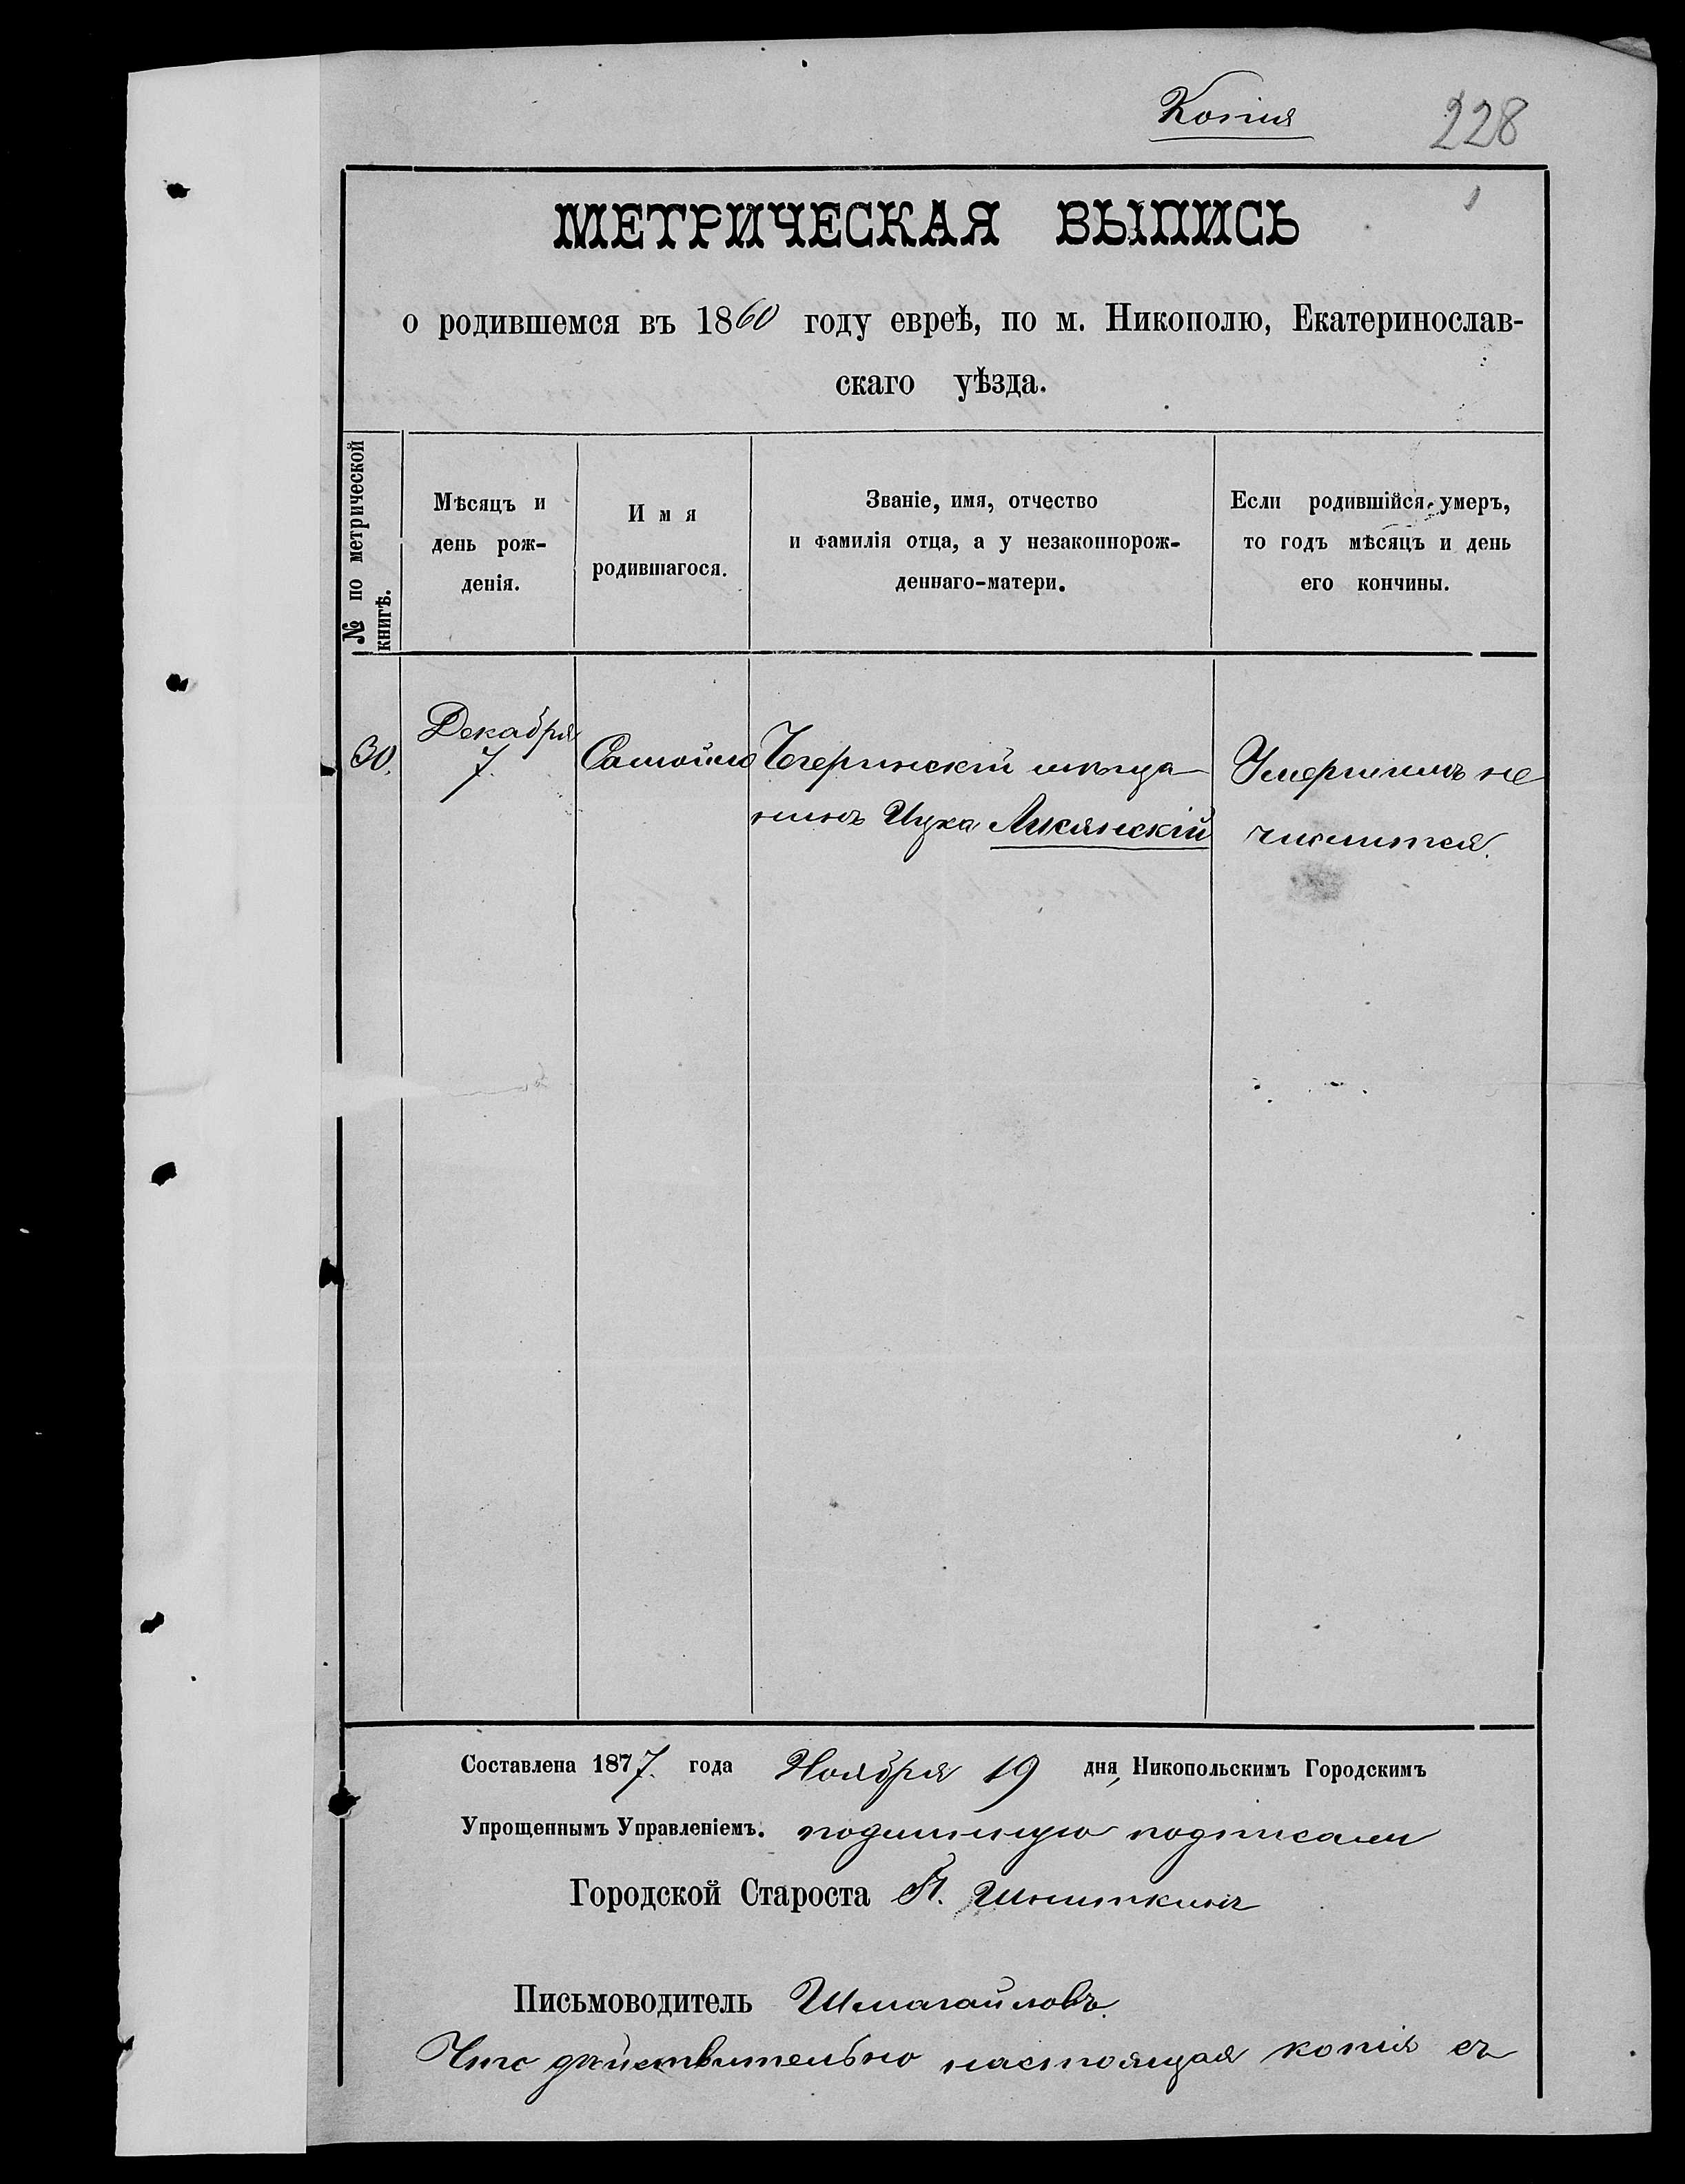 Копія
228
МЕТРИЧЕСКАЯ ВЫПИСЬ
о родившемся въ 1860 году евреѣ, по м. Никополю, Екатеринослав-
скаго уѣзда.
№ по метрической
книгѣ.
Мѣсяцъ и
день рож-
денія.
Имя
родившагося.
Званіе, имя, отчество
и фамилія отца, а у незаконнорож-
деннаго-матери.
Если родившійся умеръ,
то годъ мѣсяцъ и день
его кончины.
30.
Декабря
7.
Самойло
Чегеринскій мѣща-
нинъ Ицка Лисянскій
Умершимъ не
числится.
Составлена 1877. года Ноября 19 дня, Никопольскимъ Городскимъ
Упрощеннымъ Управленіемъ. подлинную подписали
Городской Староста П. Шниткинъ
Письмоводитель Шмагайловъ.
Что дѣйствительно настоящая копія съ